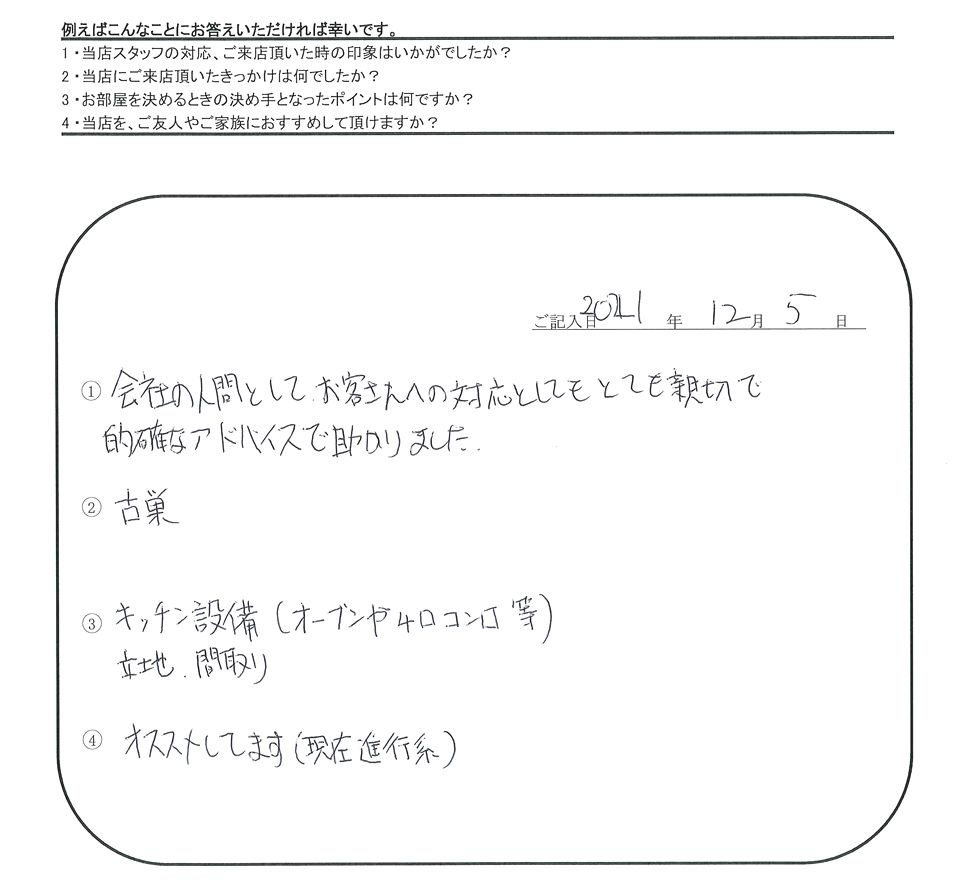 例えばこんなことにお答えいただければ幸いです。
1・当店スタッフの対応、ご来店頂いた時の印象はいかがでしたか？
2・当店にご来店頂いたきっかけは何でしたか？
3・お部屋を決めるときの決め手となったポイントは何ですか？
4・当店を、ご友人やご家族におすすめして頂けますか？
ご記入日 2021 年 12 月 5 日
① 会社の人間として、お客さんへの対応としてもとても親切で
的確なアドバイスで助かりました.
② 古巣
③ キッチン設備(オーブンや4口コンロ等)
立地.間取り
④ オススメしてます(現在進行系)